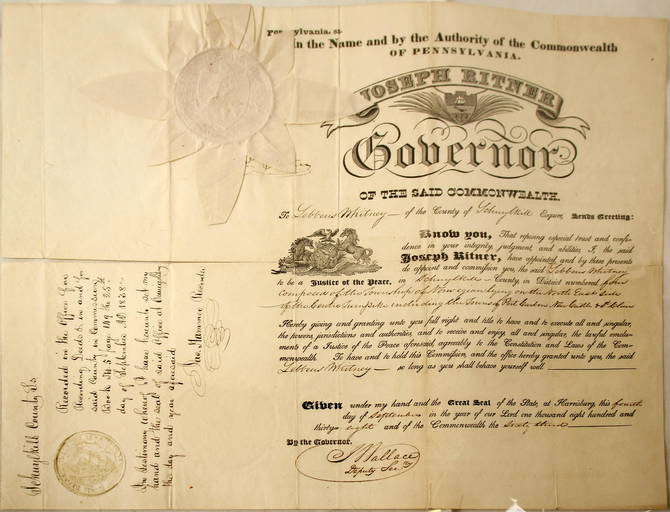 Pennsylvania, ss.
In the Name and by the Authority of the Commonwealth
OF PENNSYLVANIA.
JOSEPH RITNER
Governor
OF THE SAID COMMONWEALTH.
To Lebbeus Whitney of the County of Schuylkill Esquire, Sends Greeting:
Know you, That reposing especial trust and confi-
dence in your integrity, judgment and abilities, I, the said
Joseph Ritner, have appointed, and by these presents
do appoint and commission you, the said Lebbeus Whitney
to be a Justice of the Peace, in Schuylkill County, in District numbered four
composed of the Township of Norwegian lying on the North East side
of the Centre Turnpike including the Towns of Port Carbon New Castle & St Clair
Hereby giving and granting unto you full right and title to have and to execute all and singular,
the powers, jurisdictions and authorities, and to receive and enjoy all and singular, the lawful emolu-
ments of a Justice of the Peace aforesaid, agreeably to the Constitution and Laws of the Com-
monwealth. To have and to hold this Commission, and the office hereby granted unto you, the said
Lebbeus Whitney so long as you shall behave yourself well.
Given under my hand and the Great Seal of the State, at Harrisburg, this fourth
day of September in the year of our Lord one thousand eight hundred and
thirty-eight and of the Commonwealth the sixty third
By the Governor.
J Wallace
Deputy Secy
Schuylkill County Ss
Recorded in the Office for
Recording Deeds &c in and for
said County in Commission
Book No 5 page 104 the 25th
day of September AD 1838
In testimony whereof I have hereunto set my
hand and the seal of said Office at Orwigsburg
the day and year aforesaid
Recorder